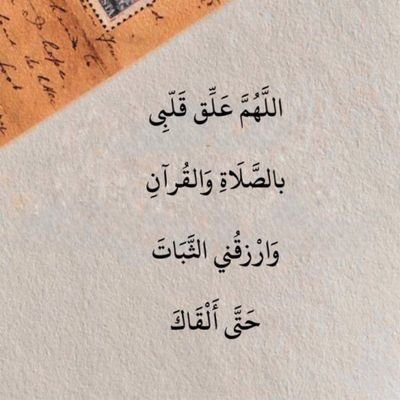 اللَّهُمَّ عَلِّق قَلّبِى
بالصَّلَاةِ وَالقُرآنِ
وَارْزقُني الثَّبَاتَ
حَتَّى أَلْقَاكَ